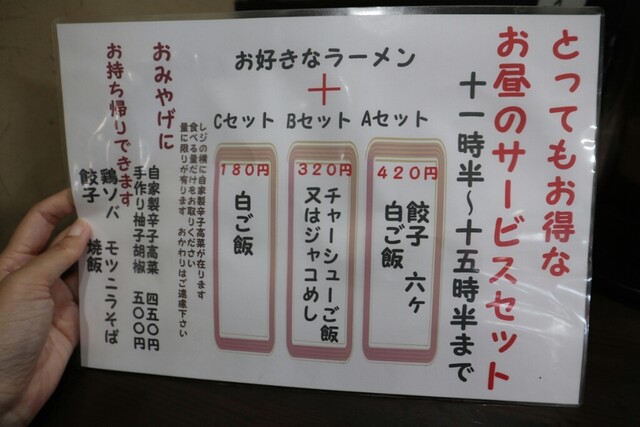 とってもお得な
お昼のサービスセット
十一時半～十五時半まで
お好きなラーメン
＋
Aセット
420円
餃子 六ヶ
白ご飯
Bセット
320円
チャーシューご飯
又はジャコめし
Cセット
180円
白ご飯
レジの横に自家製辛子高菜が在ります
食べる量だけをお取りください
量に限りが有ります おかわりはご遠慮下さい
おみやげに
お持ち帰りできます
自家製辛子高菜 四五〇円
手作り柚子胡椒 五〇〇円
鶏ソバ モツニラそば
餃子 焼飯